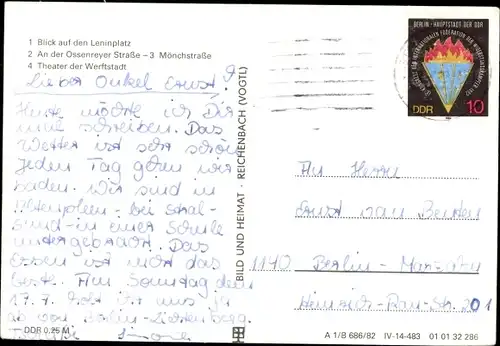 1 Blick auf den Leninplatz
2 An der Ossenreyer Straße – 3 Mönchstraße
4 Theater der Werftstadt
Lieber Onkel Ernst!
Heute möchte ich Dir
mal schreiben. Das
Wetter ist sehr schön
jeden Tag gehen wir
baden. Wir sind in
bei Stral-
sund - in einer Schule
untergebracht. Das
Essen ist nicht das
beste. Am Sonntag dem
17.7. holt uns
ab von Berlin-Lichtenberg.
Simone
DDR 0,25 M
BILD UND HEIMAT · REICHENBACH (VOGTL)
BERLIN · HAUPTSTADT DER DDR
DDR
10
An Herrn
Ernst van
1140 Berlin - Marzahn
Heinrich-Rau-Str. 201
A 1/B 686/82 IV-14-483 01 01 32 286